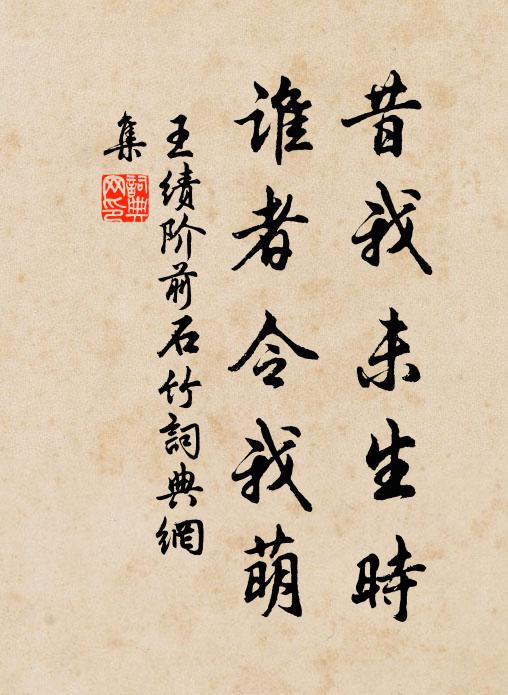 昔我未生時
谁者令我萌
王绩阶前石竹詞典網
集
詞典网印